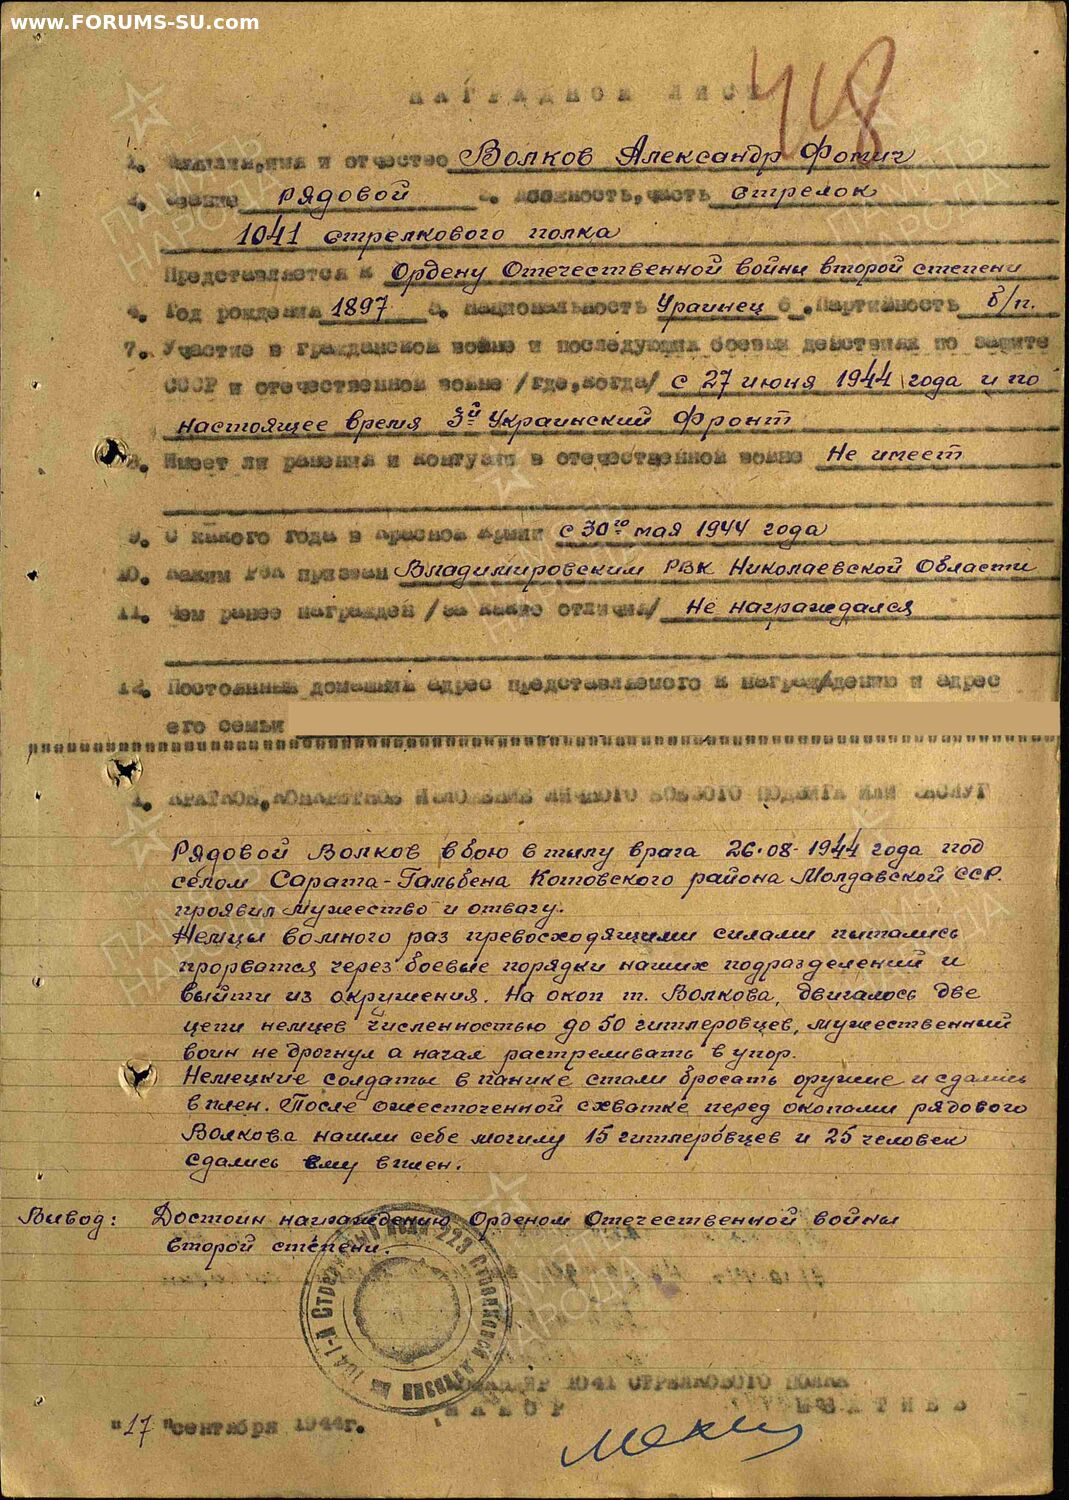 www.FORUMS-SU.com
НАГРАДНОЙ ЛИСТ
48
1. Фамилия, имя и отчество Волков Александр Фомич
2. Звание рядовой 3. Должность, часть стрелок
1041 стрелкового полка
Представляется к Ордену Отечественной войны второй степени
4. Год рождения 1897 5. Национальность Украинец 6. Партийность б/п.
7. Участие в гражданской войне и последующих боевых действиях по защите
СССР и отечественной войне /где, когда/ с 27 июня 1944 года и по
настоящее время 3й Украинский Фронт
8. Имеет ли ранения и контузии в отечественной войне Не имеет
9. С какого года в Красной Армии с 30го мая 1944 года
10. Каким РВК призван Владимировским РВК Николаевской Области
11. Чем ранее награжден /за какие отличия/ Не награждался
12. Постоянный домашний адрес представляемого к награждению и адрес
его семьи
1. КРАТКОЕ, КОНКРЕТНОЕ ИЗЛОЖЕНИЕ ЛИЧНОГО БОЕВОГО ПОДВИГА ИЛИ ЗАСЛУГ
Рядовой Волков в бою в тылу врага 26.08-1944 года под
селом Сарата-Гальбена Котовского района Молдавской ССР.
проявил мужество и отвагу.
Немцы во много раз превосходящими силами пытались
прорватся через боевые порядки наших подразделений и
выйти из окружения. На окоп т. Волкова, двигалось две
цепи немцев численностью до 50 гитлеровцев, мужественный
воин не дрогнул а начал растреливать в упор.
Немецкие солдаты в панике стали бросать оружие и сдались
в плен. После ожесточенной схватке перед окопами рядового
Волкова нашли себе могилу 15 гитлеровцев и 25 человек
сдались ему в плен.
Вивод: Достоин награждению Орденом Отечественной войны
второй степени.
1041-й Стрелковый полк 223 Стрелковой дивизии
КОМАНДИР 1041 СТРЕЛКОВОГО ПОЛКА
МАЙОР
"17" сентября 1944г.
ПАМЯТЬ НАРОДА